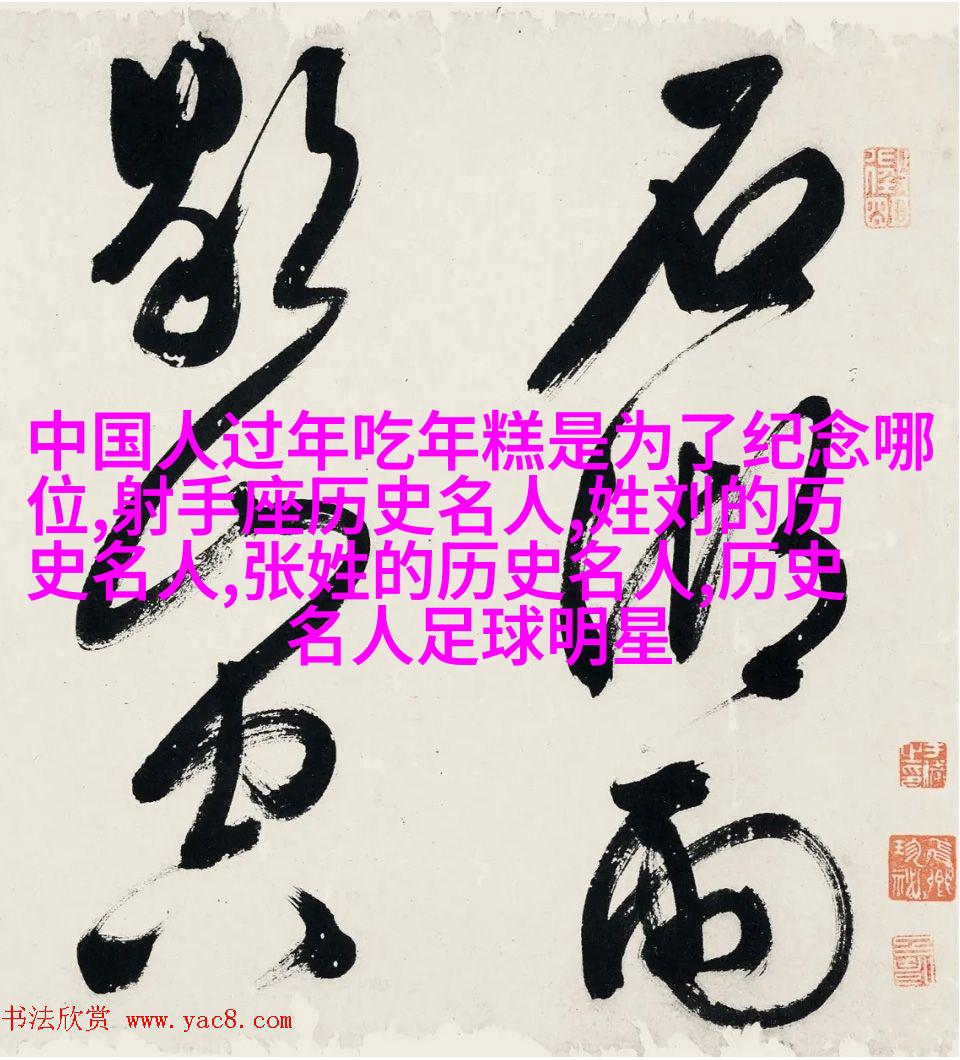 石湖雨
歇山空
中国人过年吃年糕是为了纪念哪
位,射手座历史名人,姓刘的历
史名人,张姓的历史名人,历史
名人足球明星
书法欣赏 www.yac8.com